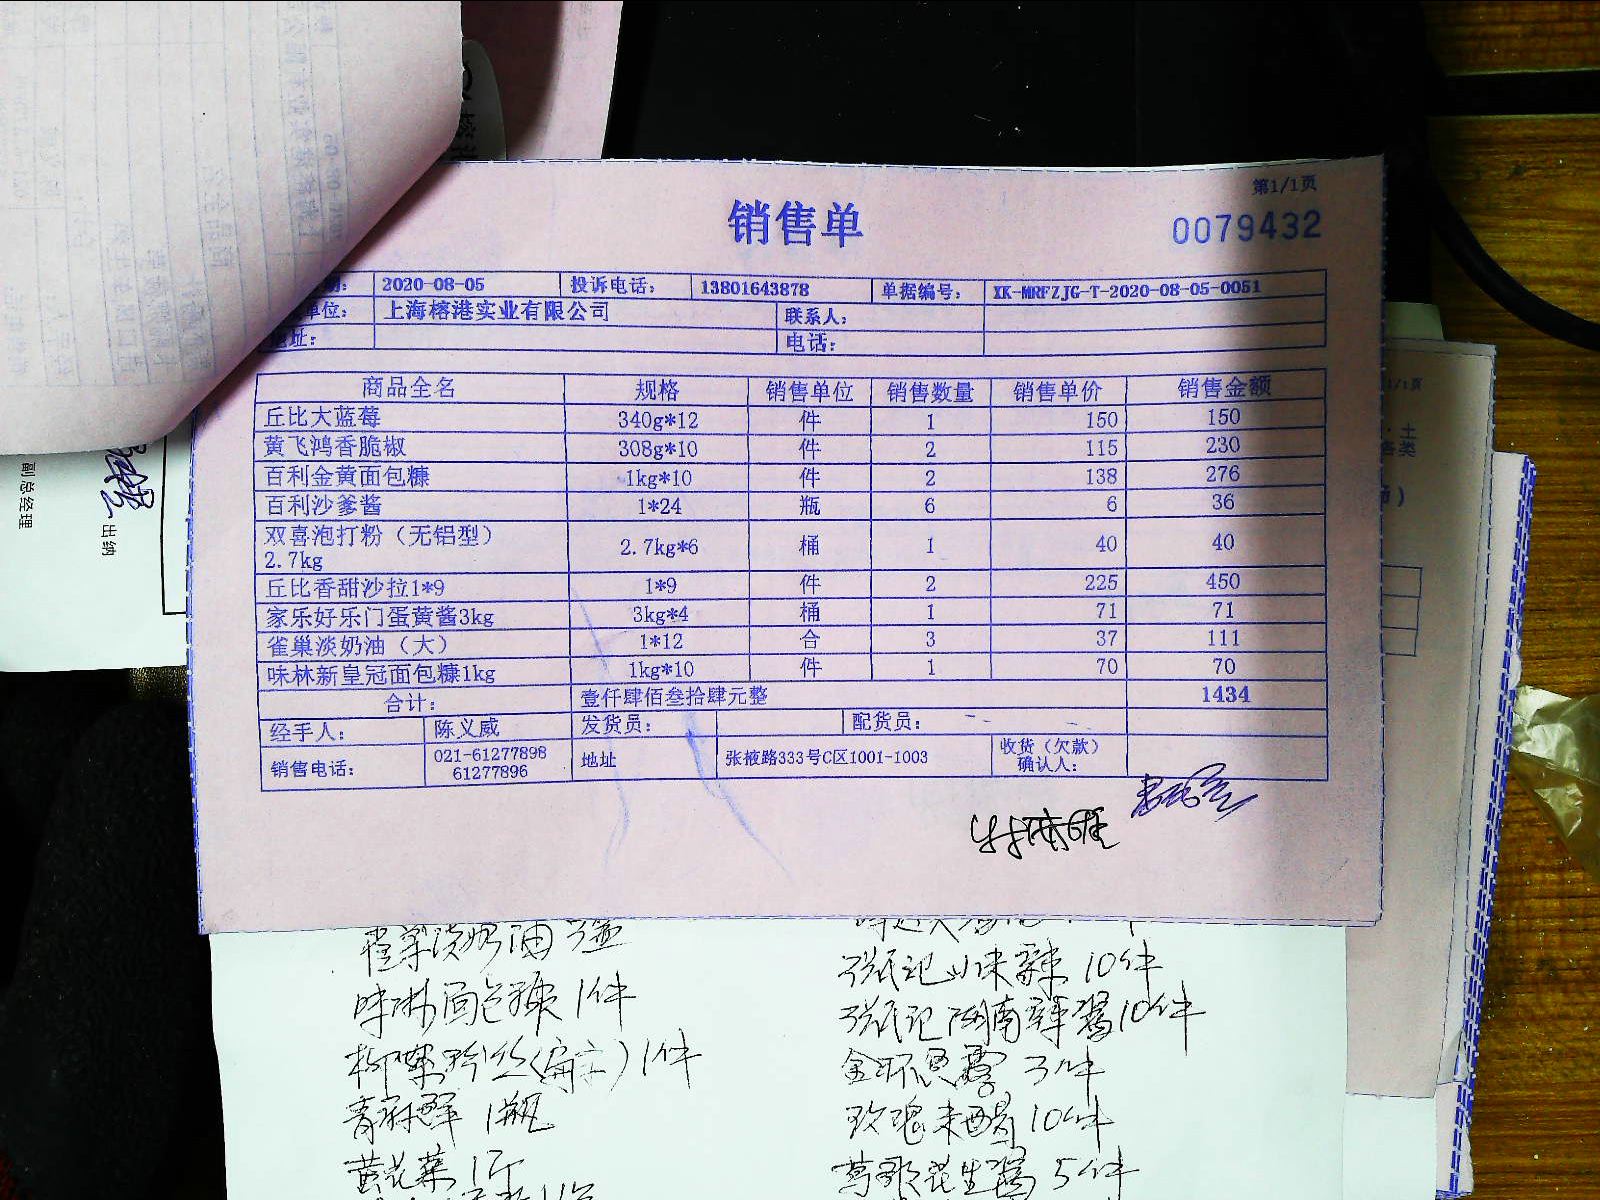 第1/1页
销售单
0079432
2020-08-05 投诉电话: 13801643878 单据编号: XK-MRFZJG-T-2020-08-05-0051
单位: 上海榕港实业有限公司 联系人:
地址: 电话:
商品全名 规格 销售单位 销售数量 销售单价 销售金额
丘比大蓝莓 340g*12 件 1 150 150
黄飞鸿香脆椒 308g*10 件 2 115 230
百利金黄面包糠 1kg*10 件 2 138 276
百利沙爹酱 1*24 瓶 6 6 36
双喜泡打粉（无铝型）
2.7kg 2.7kg*6 桶 1 40 40
丘比香甜沙拉1*9 1*9 件 2 225 450
家乐好乐门蛋黄酱3kg 3kg*4 桶 1 71 71
雀巢淡奶油（大） 1*12 合 3 37 111
味林新皇冠面包糠1kg 1kg*10 件 1 70 70
合计: 壹仟肆佰叁拾肆元整 1434
经手人: 陈义威 发货员: 配货员:
销售电话: 021-61277898
61277896 地址 张掖路333号C区1001-1003 收货（欠款）
确认人:
副总经理
出纳
雀巢淡奶油 3盒
味淋面包糠 1件
1件
1瓶
黄花菜 1斤
10件
10件
3件
玫瑰米醋 10件
花生酱 5件